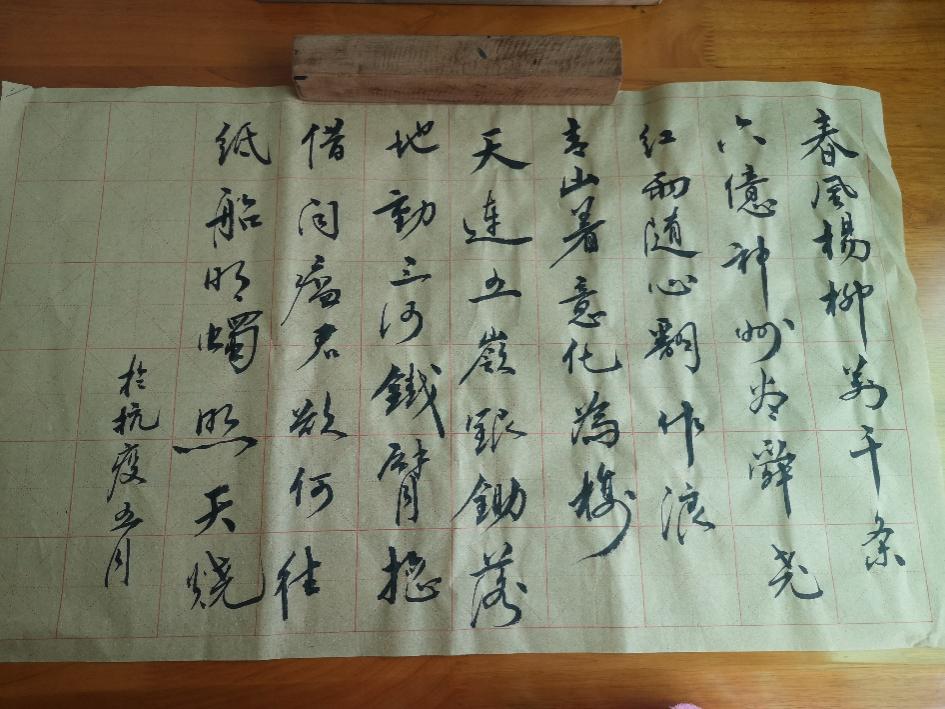 春風楊柳萬千条
六億神州尽舜尧
红雨随心翻作浪
青山着意化為橋
天連五嶺銀鋤落
地動三河鐵臂搖
借问瘟君欲何往
紙船明烛照天燒
於抗疫五月